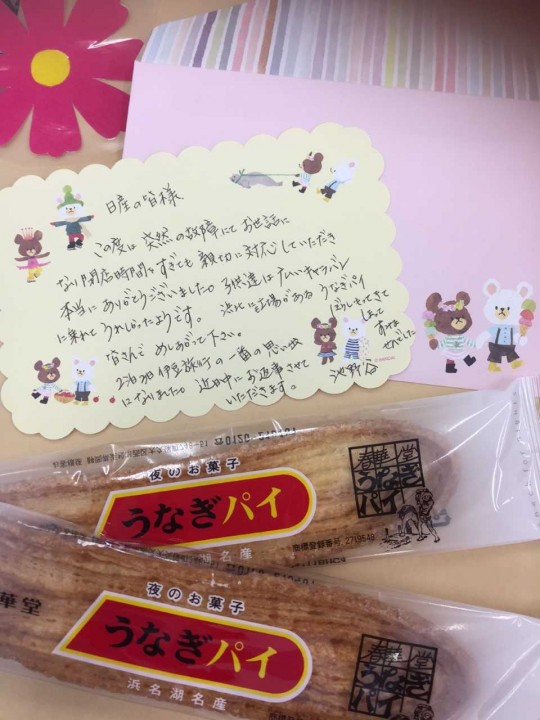 日産の皆様
この度は 突然の故障にてお世話に
なり閉店時間をすぎても親切に対応していただき
本当にありがとうございました。子供達は キャラバン
に乗れてうれしかったようです。 浜北に工場がある うなぎパイ
皆さんで めしあがって下さい。
2泊3日伊豆旅行の一番の思い出
になりました。近日中にお返事させて
いただきます。
ほしもってきて
しまって
すみま
せんでした
池野谷
夜のお菓子
うなぎパイ
浜名湖名産
春華堂
うなぎ
パイ
商標登録番号 2719548
夜のお菓子
うなぎパイ
浜名湖名産
華堂
春華堂
うなぎ
パイ